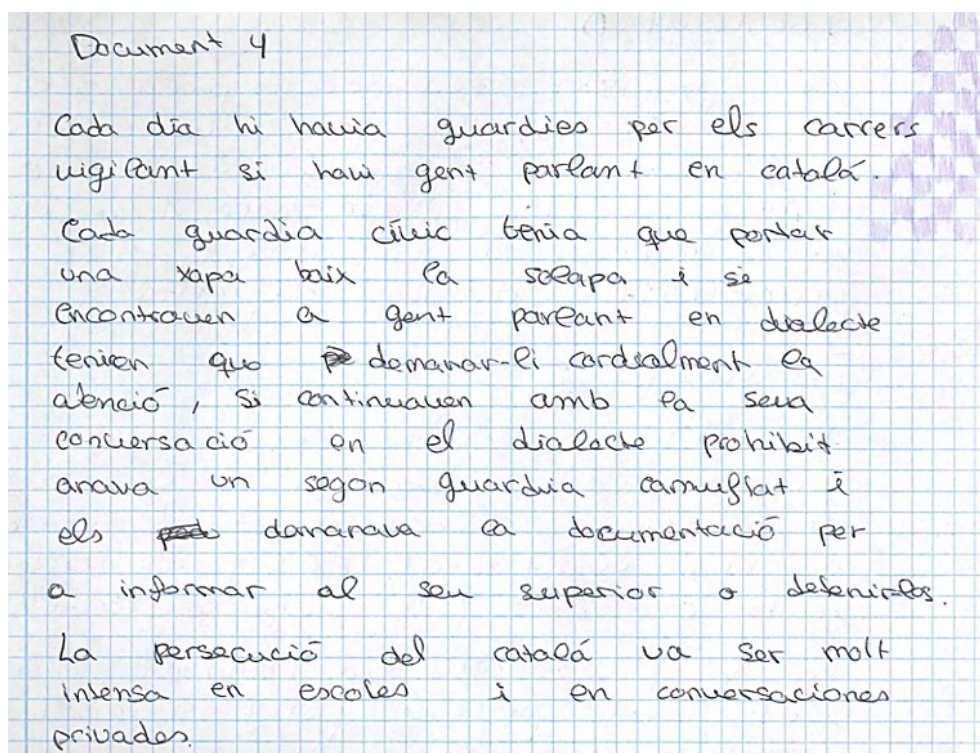 Document 4
Cada día hi havia guardies per els carrers
vigilant si havi gent parlant en catalá.
Cada guardia cívic tenia que portar
una xapa baix la solapa i si
encontraven a gent parlant en dialecte
tenien que demanar-li cordialment la
atenció, si continuaven amb la seva
conversació en el dialecte prohibit
anava un segon guardvia camuflat i
els demanava la documentació per
a informar al seu superior o detenir-los.
La persecució del catalá va ser molt
intensa en escoles i en conversaciones
privades.